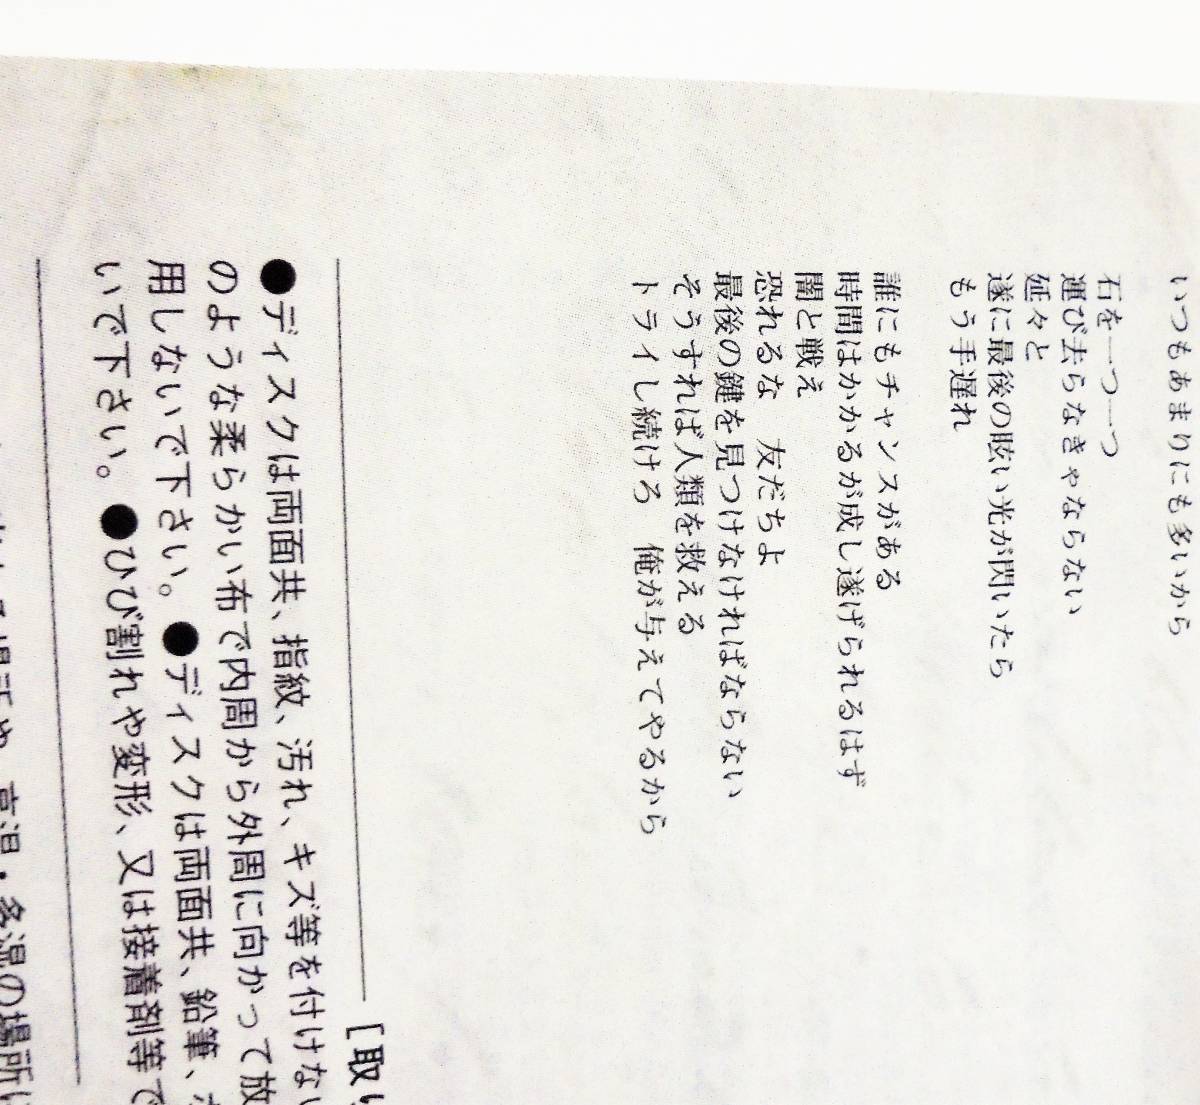 いつもあまりにも多いから
石を一つ一つ
運び去らなきゃならない
延々と
遂に最後の眩い光が閃いたら
もう手遅れ
誰にもチャンスがある
時間はかかるが成し遂げられるはず
闇と戦え
恐れるな　友だちよ
最後の鍵を見つけなければならない
そうすれば人類を救える
トライし続けろ　俺が与えてやるから
[取り
●ディスクは両面共、指紋、汚れ、キズ等を付けない
のような柔らかい布で内周から外周に向かって放
用しないで下さい。●ディスクは両面共、鉛筆、ボ
いで下さい。●ひび割れや変形、又は接着剤等で
高温・多湿の場所に